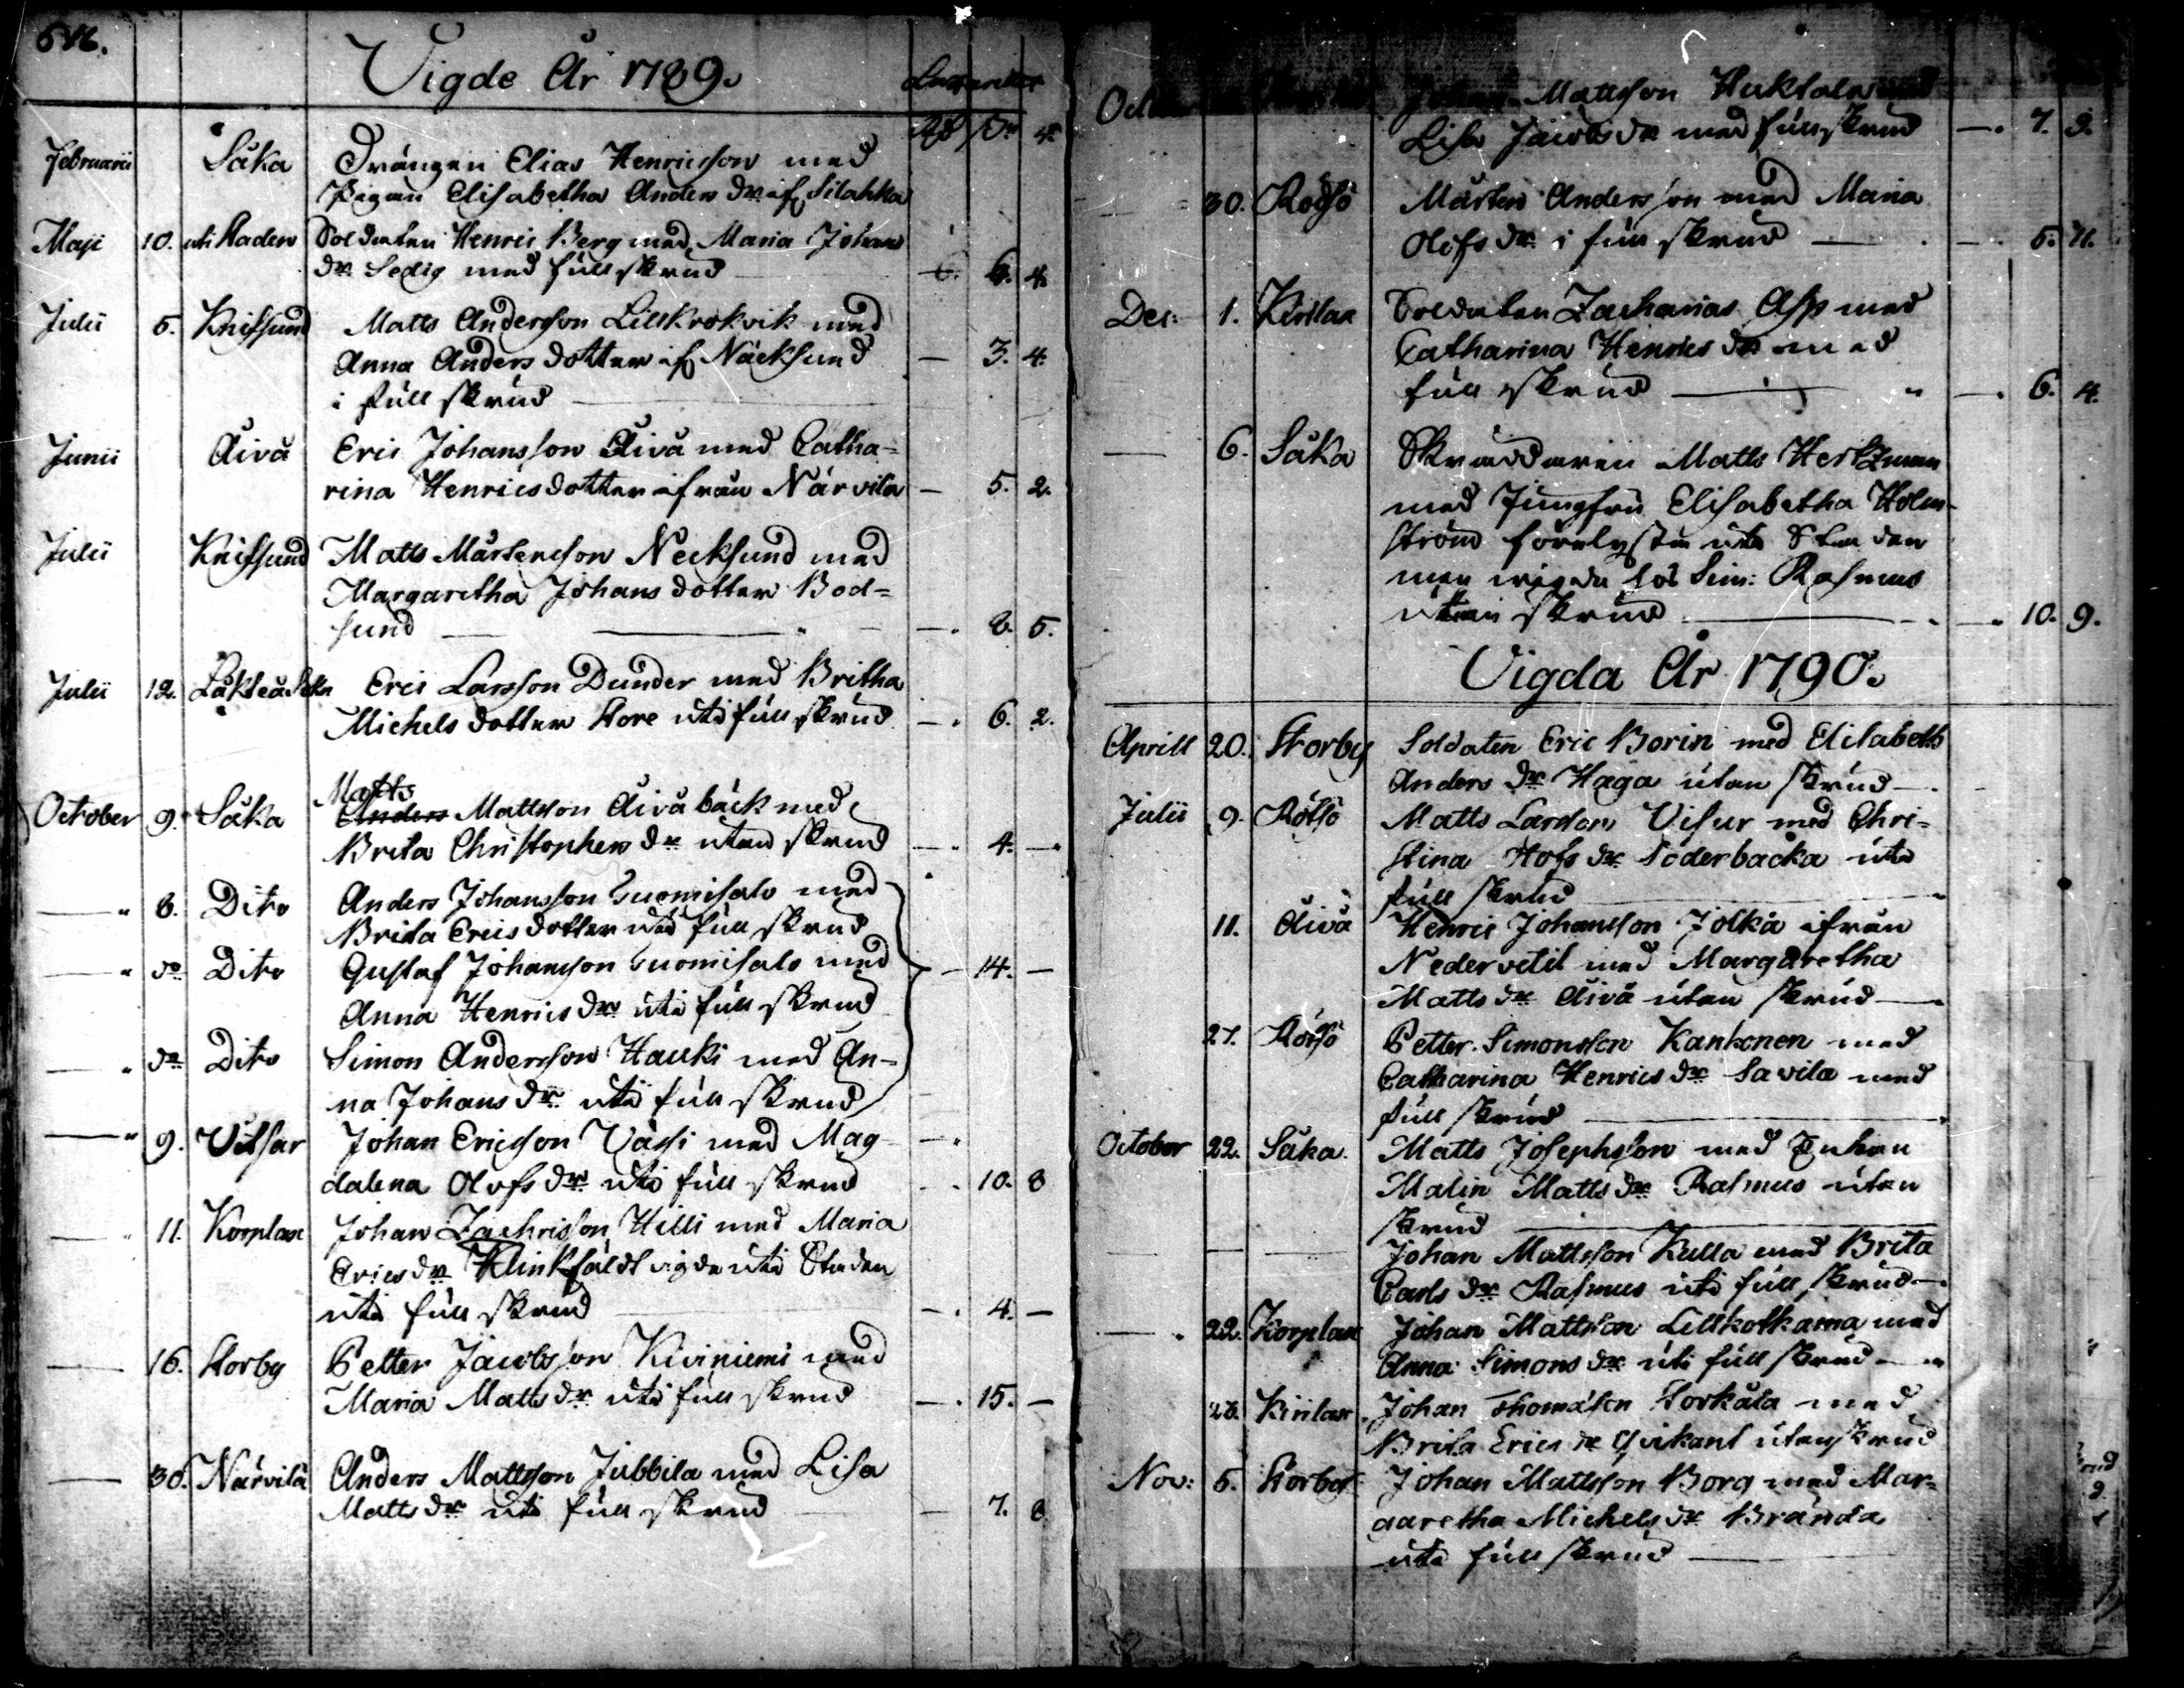 546.
Vigde År 1789.
Februarii Såka Drängen Elias Henricsson med
Pigan Elisabetha Anders dr af Silahka
Maji 10. uti Staden Soldaten Henric Berg med Maria Johans
dr Ledig med full skrud 6. 4.
Julii 5. Knifsund Matts Andersson Lillkrokvik med
Anna Anders dotter af Näcksund — 3. 4.
i full skrud
Junii Åivå Eric Johansson Åivå med Catha=
rina Henricsdotter ifrån Närvila — 5. 2.
Julii Knifsund Matts Mårtensson Necksund med
Margaretha Johans dotter Bod=
sund — 8. 5.
Julii 12. Eric Larsson Dunder med Britha
Michels dotter Store uti full skrud — 6. 2.
Matts
October 9. Såka Anders Mattsson Åivåbäck med
Brita Christophers dr utan skrud — 4. —
— 8. Dito Anders Johansson Suomisalo med
Brita Ericsdotter uti full skrud
— do Dito Gustaf Johansson Suomisalo med — 14. —
Anna Henrics dr uti full skrud
— do Dito Simon Andersson Hauki med An-
na Johans dr uti full skrud
— 9. Vitsar Johan Ericsson Vässi med Mag-
dalena Olofs dr uti full skrud — 10. 8
11. Korplax Johan Zachrisson Hilli med Maria
Erics dr Klinkfäldt vigde uti Staden
uti full skrud — 4. —
— 16. Storby Petter Jacobsson Kiviniemi med
Maria Matts dr uti full skrud — 15. —
— 30. Närvilä Anders Mattsson Jubbila med Lisa
Matts dr uti full skrud — 7. 8
Johan Mattsson
Lisa Jacobs dr med full skrud — 7. 9.
30. Rödsö Mårten Andersson med Maria
Olofs dr i full skrud — 5. 11.
Dec: 1. Kirilax Soldaten Zacharias Asp med
Catharina Henrics dr med
full skrud — 6. 4.
— 6. Såka Skräddaren Matts Hertzman
med Jungfru Elisabetha Holm-
ström förelyste uti Staden
men vigde hos Sim: Rasmus
utan skrud — 10. 9.
Vigda År 1790.
Aprill 20. Storby Soldaten Eric Borin med Elisabeth
Anders dr Haga utan skrud —
Julii 9. Rötsö Matts Larsson Visur med Chri-
stina Olofs dr Söderbacka uti
full skrud
11. Åivå Henric Johansson Jolkå ifrån
Nedervetil med Margaretha
Matts dr Åivå utan skrud —
27. Rödsö Petter Simonsson Kankonen med
Catharina Henrics dr Savila med
full skrud
October 22. Såka. Matts Josephsson med Enkan
Malin Matts dr Rasmus utan
skrud
— — — Johan Mattsson Kulla med Brita
Carls dr Rasmus uti full skrud —
— 22. Korplax Johan Mattsson Lillkotkama med
Anna Simons dr uti full skrud —
Kirilax Johan Thomasson Storkåla med
Brita Erics dr Qvikant utan skrud
Nov: 5. Storby Johan Mattsson Borg med Mar=
garetha Michels dr Brända
uti full skrud —